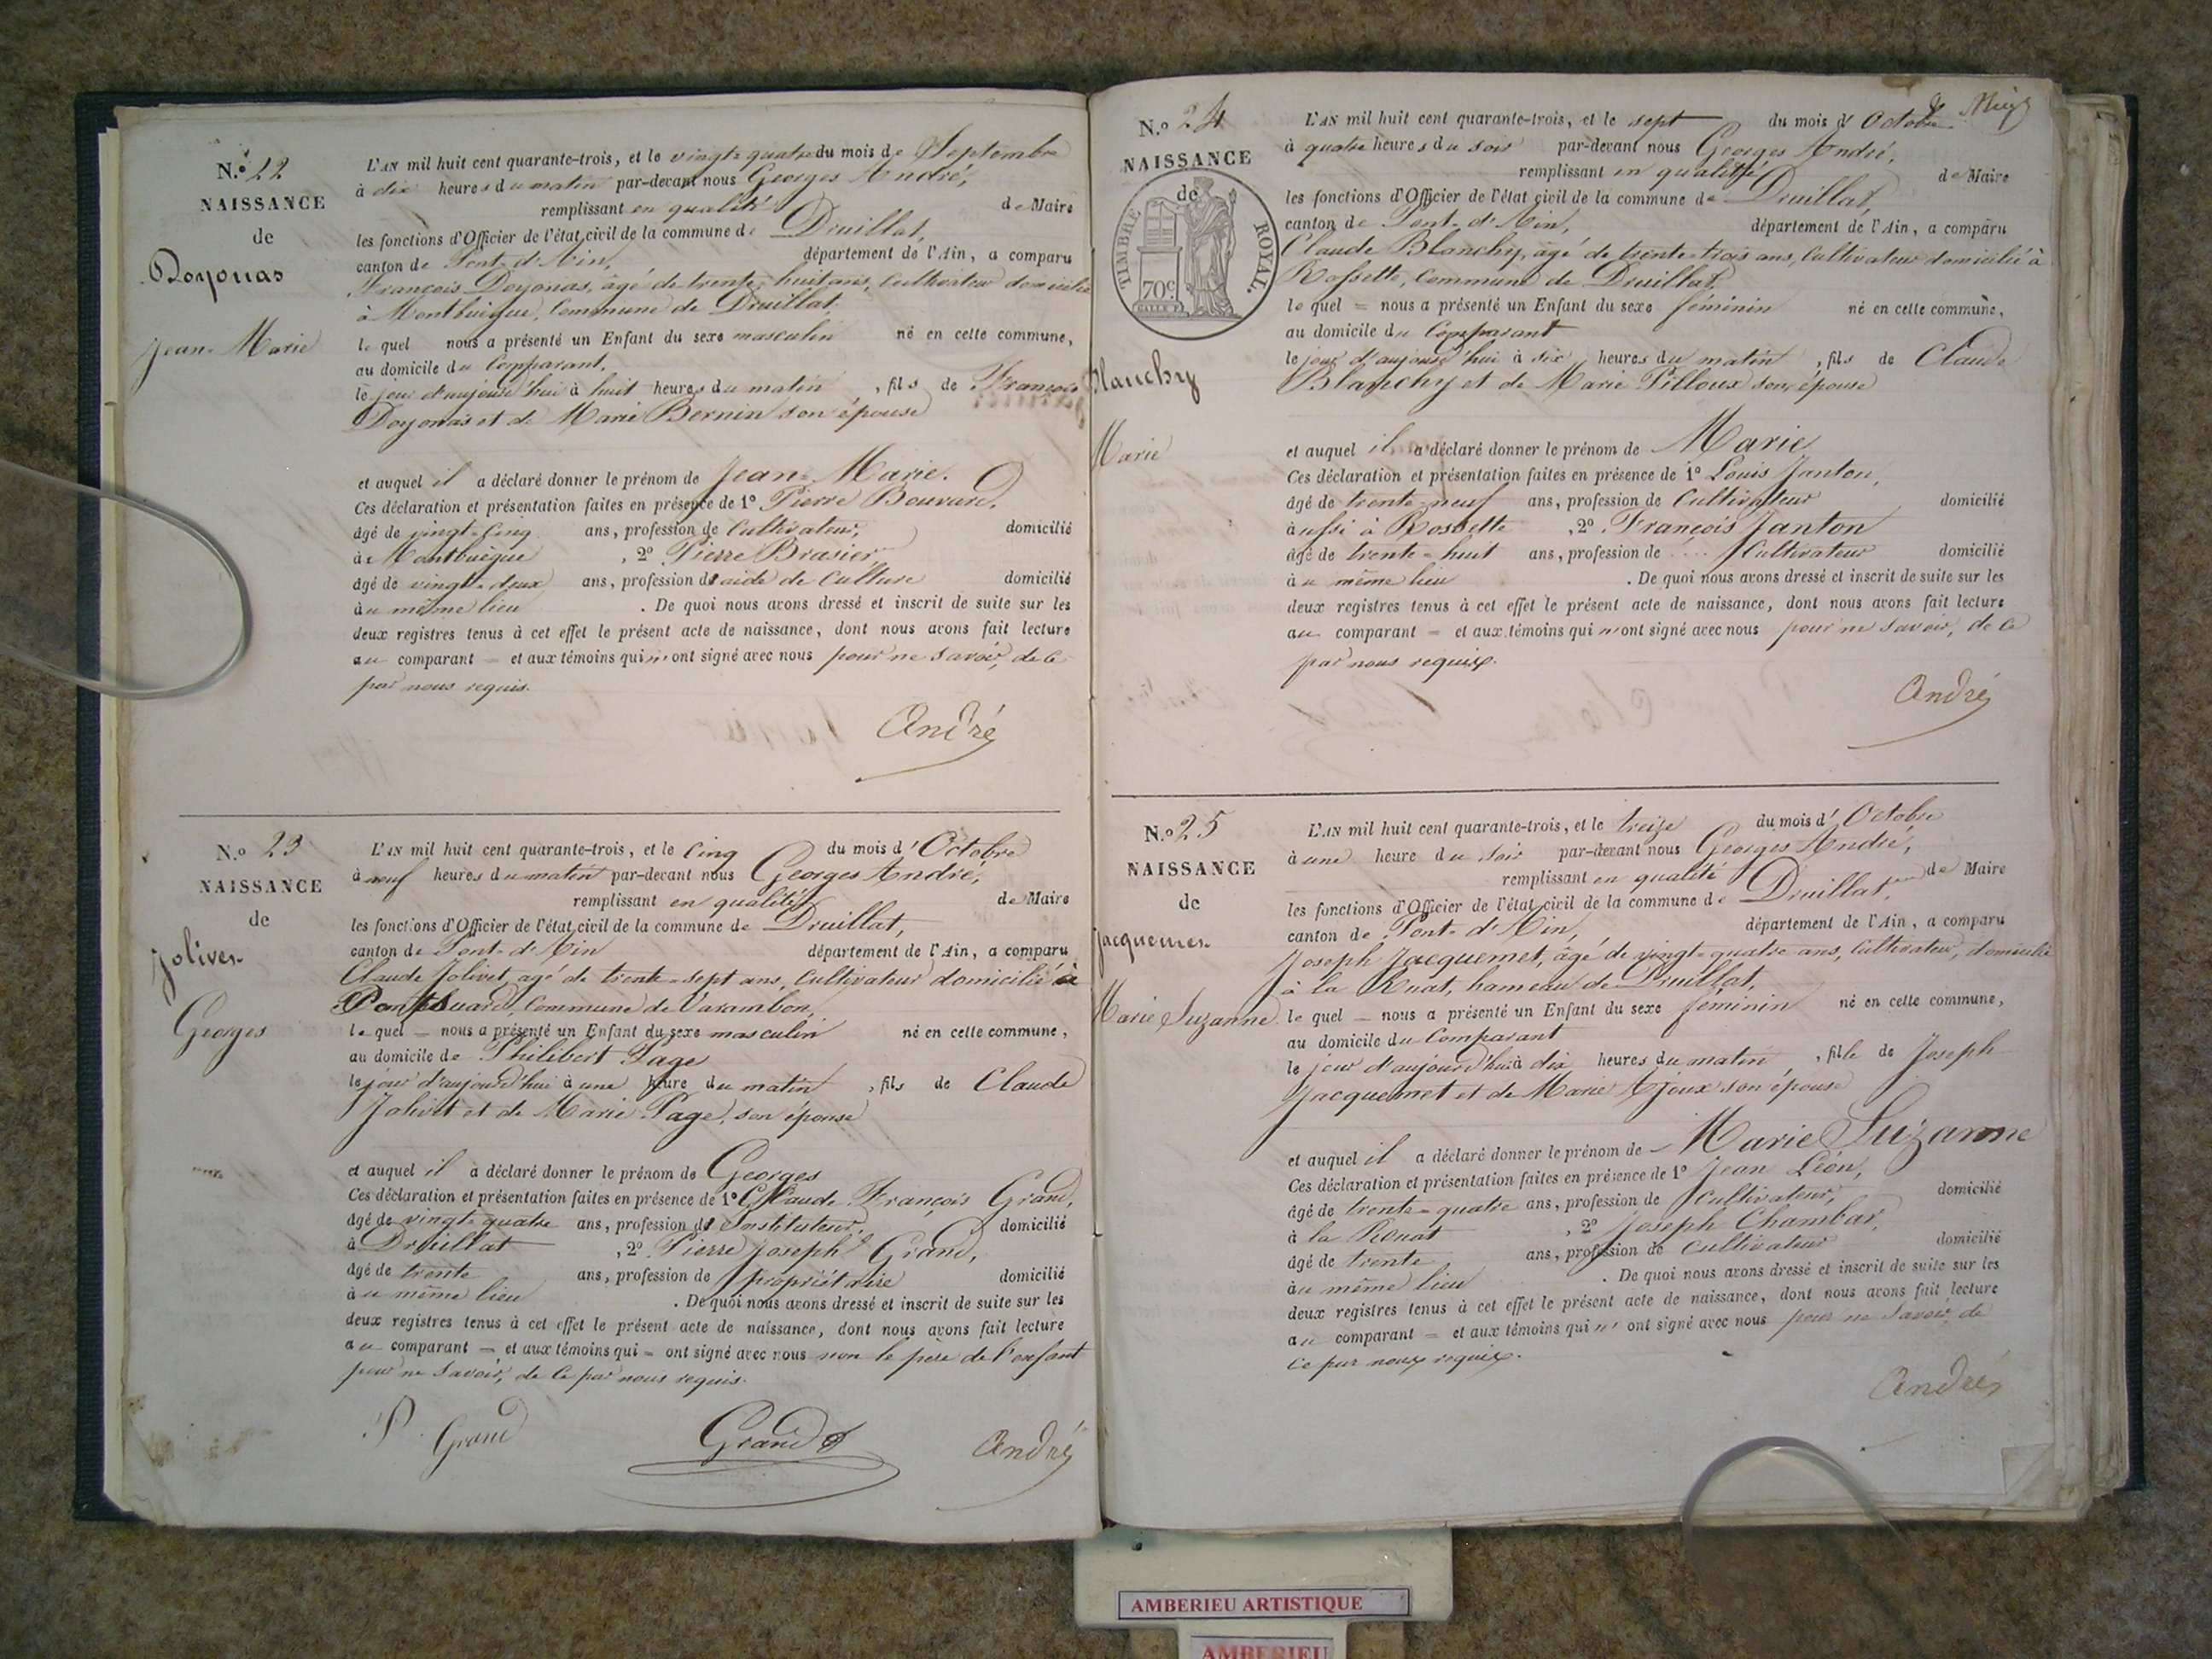 N.º 22
NAISSANCE
de
Doyonas
Jean-Marie
L'AN mil huit cent quarante-trois, et le vingt-quatre du mois de Septembre
à dix heures du matin par-devant nous Georges André,
remplissant en qualité de Maire
les fonctions d'Officier de l'état civil de la commune de Druillat,
canton de Pont-d'Ain, département de l'Ain, a comparu
François Doyonas, âgé de trente-huit ans, Cultivateur domicilié
à Montbuègue, Commune de Druillat,
le quel nous a présenté un Enfant du sexe masculin né en cette commune,
au domicile du Comparant,
le jour d'aujourd'hui à huit heures du matin, fils de François
Doyonas et de Marie Bernin son épouse
et auquel il a déclaré donner le prénom de Jean-Marie.
Ces déclaration et présentation faites en présence de 1º Pierre Bouvard,
âgé de vingt-cinq ans, profession de Cultivateur, domicilié
à Montbuègue, 2º Pierre Brasier
âgé de vingt-deux ans, profession d'aide de Culture domicilié
au même lieu. De quoi nous avons dressé et inscrit de suite sur les
deux registres tenus à cet effet le présent acte de naissance, dont nous avons fait lecture
au comparant = et aux témoins qui n'ont signé avec nous pour ne savoir, de ce
par nous requis.
André
N.º 23
NAISSANCE
de
Jolivet
Georges
L'AN mil huit cent quarante-trois, et le Cinq du mois d'Octobre
à neuf heures du matin par-devant nous Georges André,
remplissant en qualité de Maire
les fonctions d'Officier de l'état civil de la commune de Druillat,
canton de Pont-d'Ain département de l'Ain, a comparu
Claude Jolivet, agé de trente-sept ans, Cultivateur domicilié à
Commune de Varambon,
le quel = nous a présenté un Enfant du sexe masculin né en cette commune,
au domicile de Philibert Page
le jour d'aujourd'hui à une heure du matin, fils de Claude
Jolivet et de Marie Page, son épouse
et auquel il a déclaré donner le prénom de Georges
Ces déclaration et présentation faites en présence de 1º Claude François Grand,
âgé de vingt-quatre ans, profession d'Instituteur, domicilié
à Druillat, 2º Pierre Joseph Grand,
âgé de trente ans, profession de propriétaire domicilié
au même lieu. De quoi nous avons dressé et inscrit de suite sur les
deux registres tenus à cet effet le présent acte de naissance, dont nous avons fait lecture
au comparant = et aux témoins qui = ont signé avec nous non le père de l'enfant
pour ne savoir, de ce par nous requis.
P. Grand
Grand
André
N.º 24
NAISSANCE
de
TIMBRE ROYAL.
70c
Blanchy
Marie
L'AN mil huit cent quarante-trois, et le sept du mois d'Octobre
à quatre heures du soir par-devant nous Georges André,
remplissant en qualité de Maire
les fonctions d'Officier de l'état civil de la commune de Druillat,
canton de Pont-d'Ain, département de l'Ain, a comparu
Claude Blanchy, âgé de trente-trois ans, Cultivateur domicilié à
Rossette, Commune de Druillat,
le quel = nous a présenté un Enfant du sexe féminin né en cette commune,
au domicile du Comparant
le jour d'aujourd'hui à six heures du matin, fils de Claude
Blanchy et de Marie Pilloux son épouse
et auquel il a déclaré donner le prénom de Marie
Ces déclaration et présentation faites en présence de 1º Louis Janton,
âgé de trente-neuf ans, profession de Cultivateur domicilié
aussi à Rossette, 2º François Janton
âgé de trente-huit ans, profession de Cultivateur domicilié
au même lieu. De quoi nous avons dressé et inscrit de suite sur les
deux registres tenus à cet effet le présent acte de naissance, dont nous avons fait lecture
au comparant = et aux témoins qui n'ont signé avec nous pour ne savoir, de ce
par nous requis.
André
N.º 25
NAISSANCE
de
Jacquemet
Marie Suzanne
L'AN mil huit cent quarante-trois, et le treize du mois d'Octobre
à une heure du soir par-devant nous Georges André,
remplissant en qualité de Maire
les fonctions d'Officier de l'état civil de la commune de Druillat,
canton de Pont-d'Ain, département de l'Ain, a comparu
Joseph Jacquemet, âgé de vingt-quatre ans, Cultivateur, domicilié
à la Ruat, hameau de Druillat,
le quel = nous a présenté un Enfant du sexe féminin né en cette commune,
au domicile du Comparant
le jour d'aujourd'hui à dix heures du matin, fille de Joseph
Jacquemet et de Marie son épouse
et auquel il a déclaré donner le prénom de Marie Suzanne
Ces déclaration et présentation faites en présence de 1º Jean Léon,
âgé de trente-quatre ans, profession de Cultivateur, domicilié
à la Ruat, 2º Joseph Chambar,
âgé de trente ans, profession de Cultivateur domicilié
au même lieu. De quoi nous avons dressé et inscrit de suite sur les
deux registres tenus à cet effet le présent acte de naissance, dont nous avons fait lecture
au comparant = et aux témoins qui n'ont signé avec nous pour ne savoir, de
ce par nous requis.
André
AMBERIEU ARTISTIQUE
AMBERIEU